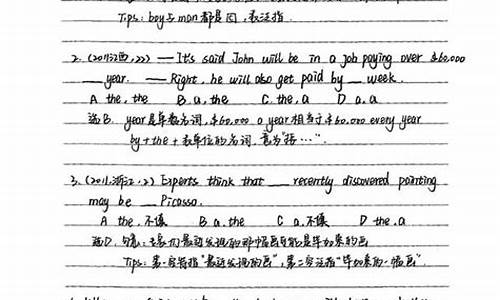 Tips: boy与man都是因,表泛指.
2. (2011江西,22) — It's said John will be in a job paying over $60,000
___ year. — Right, he will also get paid by ___ week.
A the, the B. a, the C. the, a D a, a
选B. year是单数名词, $60,000 a year 相当于 $60,000 every year
by + the + 表单位的名词, 意为"按…".
3. (2011.浙江,2) Experts think that ___ recently discovered painting
may be ___ Picasso.
A the, 不填 B. a, the C a, 不填 D the, a
选D. 句意: 专家们最近发现的那幅画可能是毕加索的画
Tips: 第一空特指"最近发现的画", 第二空泛指"毕加索的一幅画".